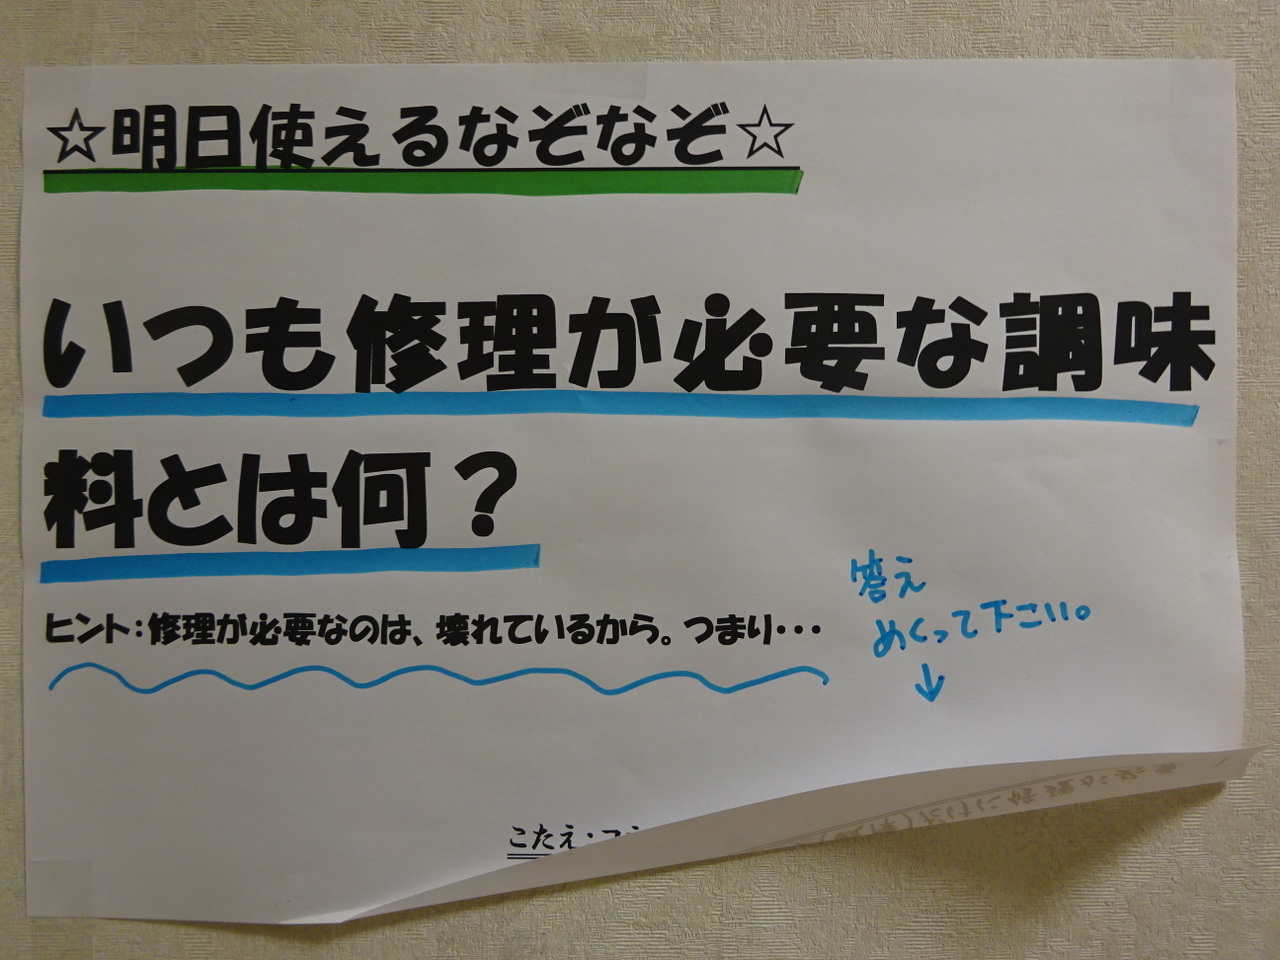 ☆明日使えるなぞなぞ☆
いつも修理が必要な調味
料とは何？
ヒント：修理が必要なのは、壊れているから。つまり・・・
答え
めくって下こい。
↓
こたえ：コシ